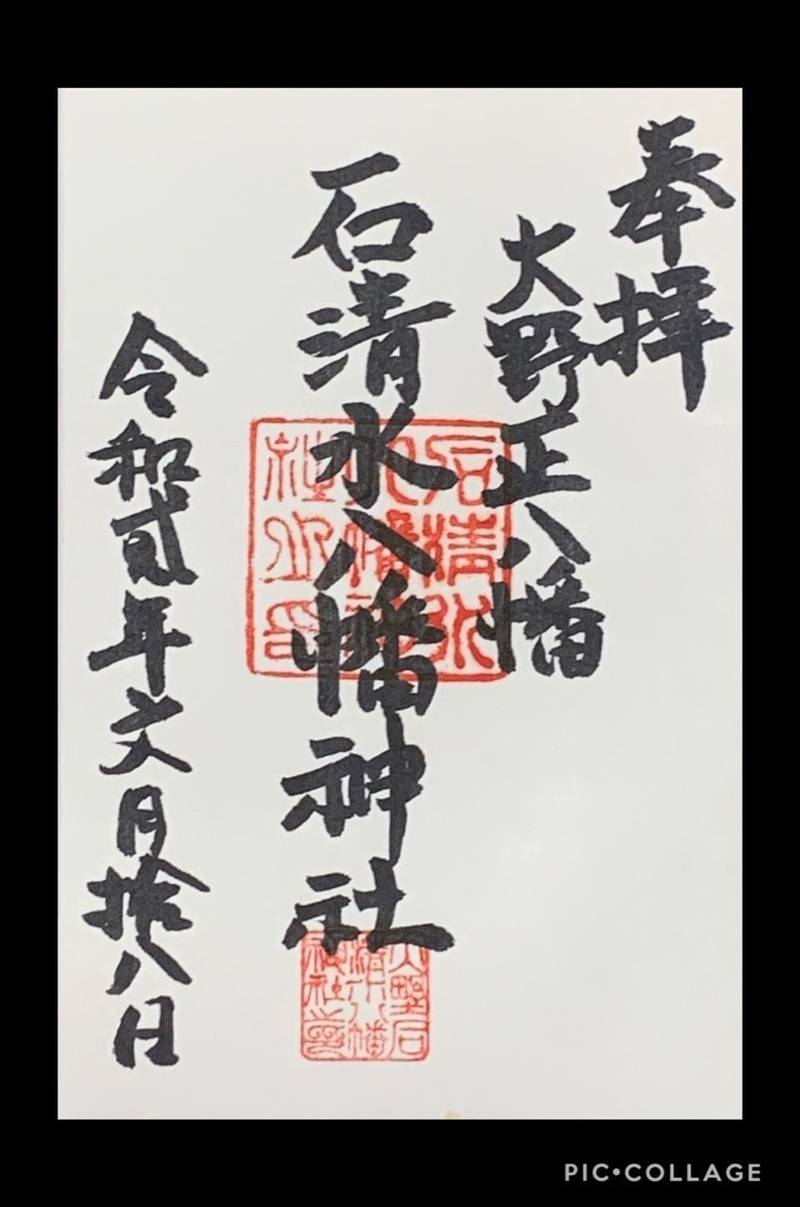 奉拝
大野正八幡
石清水八幡神社
令和貳年文月拾八日
石清水
八幡神
社之印
大野石
清水八幡
神社之印
PIC•COLLAGE